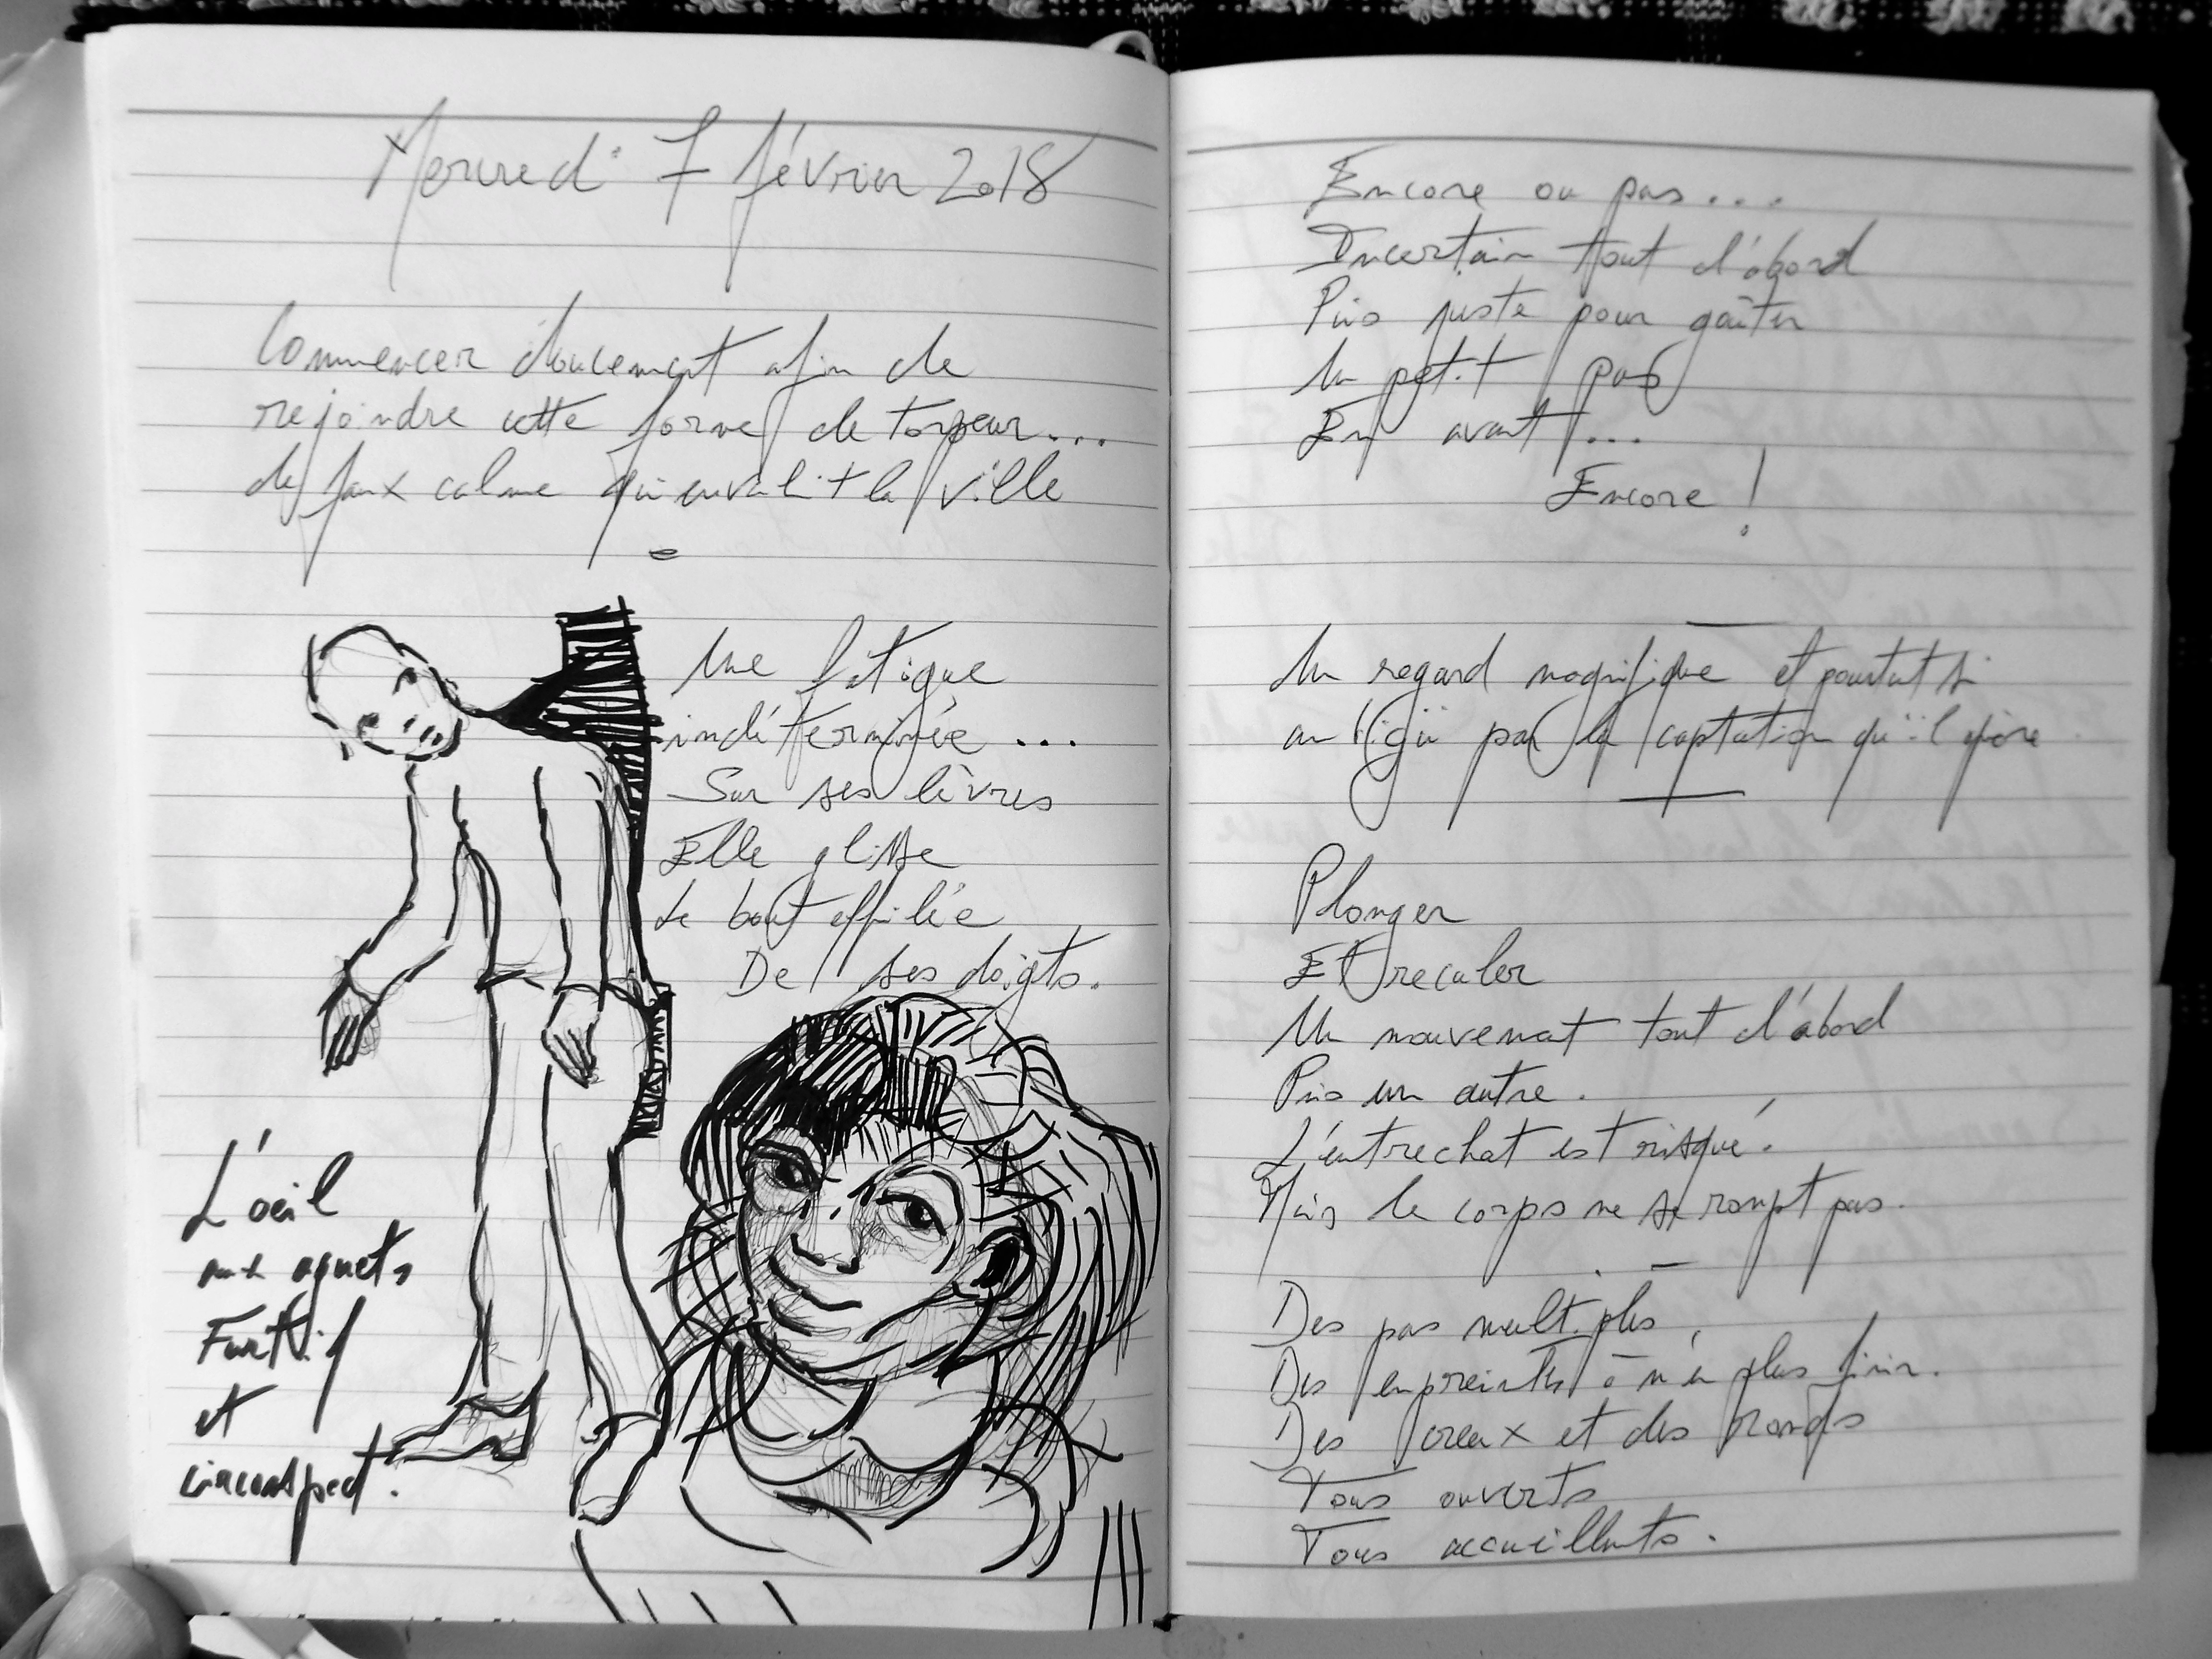 Mercredi 7 février 2018
Commencer doucement afin de
rejoindre cette forme de torpeur...
de faux calme qui envahit la ville
Une fatigue
indéterminée...
Sur ses lèvres
Elle glisse
Le bout effilée
De ses doigts.
L'oeil
aux aguets
Furtif
et
circonspect.
Encore ou pas...
Incertain tout d'abord
Puis juste pour goûter
Un petit pas
En avant...
Encore !
Un regard magnifique et pourtant si
ambigü par la captation qu'il génère
Plonger
Et reculer
Un mouvement tout d'abord
Puis un autre.
L'entrechat est risqué.
Mais le corps ne se rompt pas.
Des pas multiples,
Des empreintes à n'en plus finir.
Des creux et des
Tous ouverts
Tous accueillants.